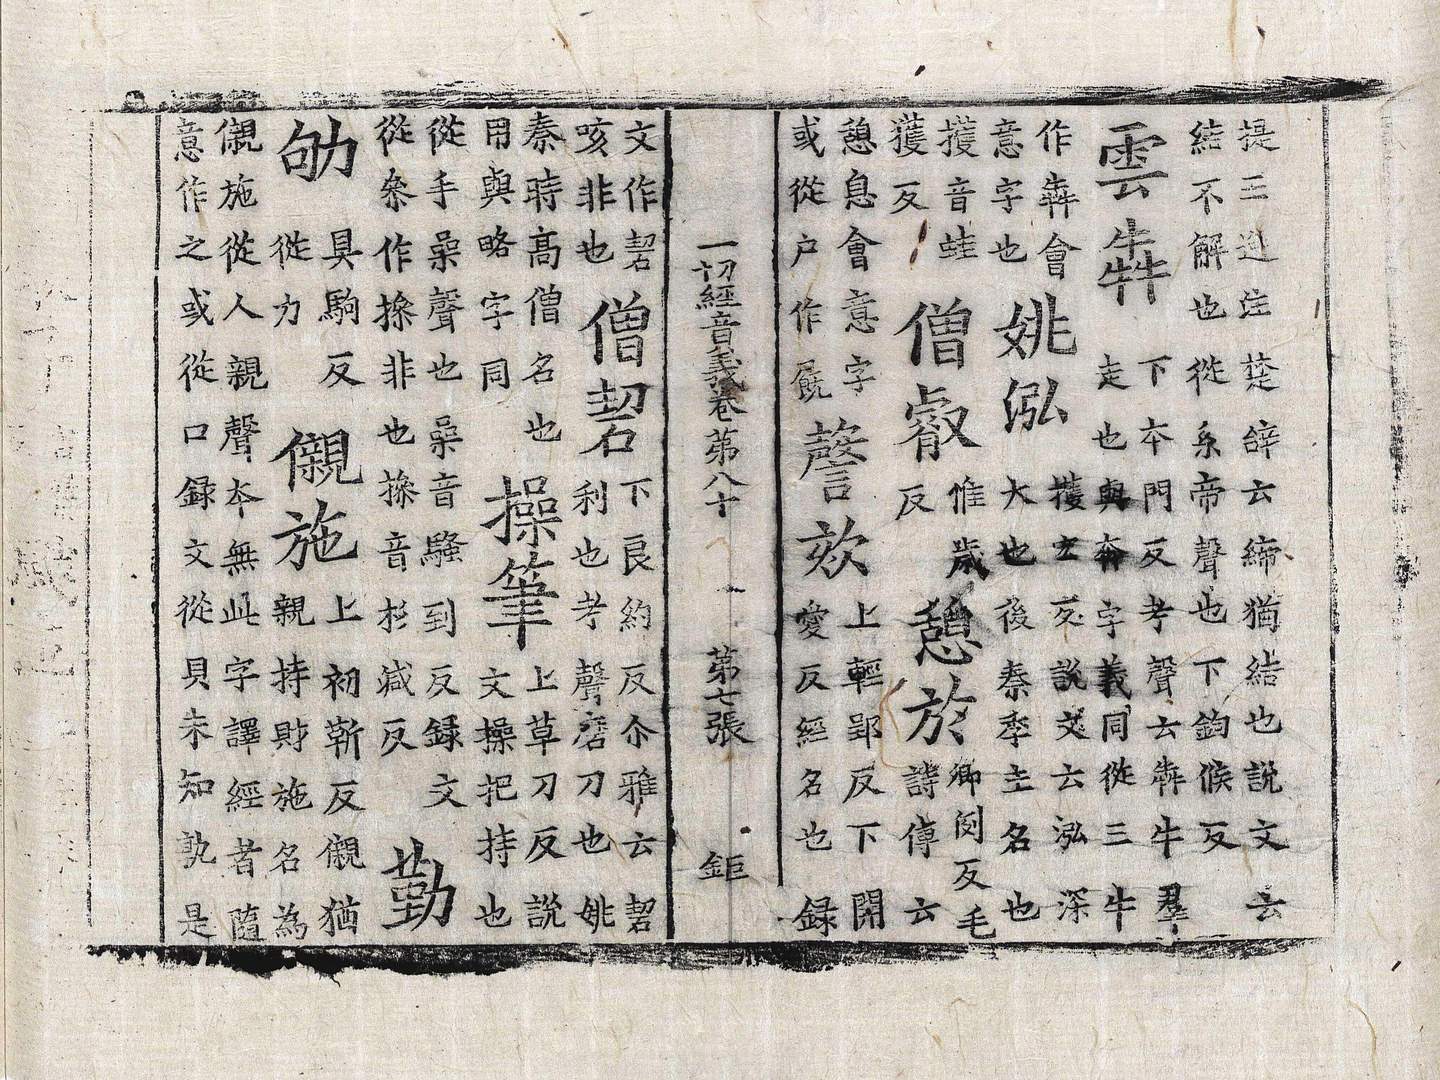 提三迫注楚辝云締猶結也說文云
結不解也從糸帝聲也下鉤候反
雲犇
下夲門反考聲云犇牛羣
走也與奔字義同從三牛
作犇會
意字也
姚泓
擭玄反說文云泓深
大也後秦季主名也
擭音蛙
獲反
僧叡
惟歲
反
憩於
卿例反毛
詩傳云
憩息會意字
或從户作㞒
謦欬
上輕郢反下開
愛反經名也録
一切經音義卷第八十 第七張 鉅
文作䂮
咳非也
僧䂮
下良約反尒雅云䂮
利也考聲磨刀也姚
秦時高僧名也
用與略字同
操筆
上草刀反說
文操把持也
從手喿聲也喿音騷到反録文
從枀作摻非也摻音杉減反
勤
劬
具駒反
從力
儭施
上初靳反儭猶
親持財施名為
儭施從人親聲夲無此字譯經者隨
意作之或從口録文從貝未知孰是